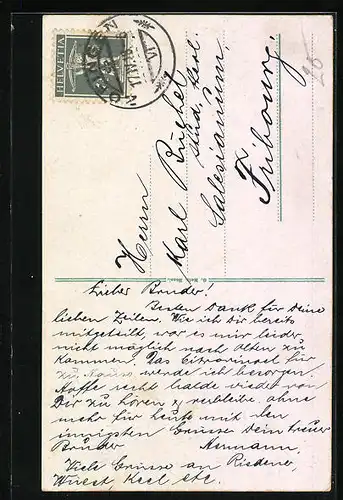 HELVETIA
Herrn
Karl Büchel
stud. theol.
Salesianum,
Fribourg.
26
Lieber Bruder!
Besten Dank für Deine
lieben Zeilen. Wie ich Dir bereits
mitgeteilt, war es mir leider
nicht möglich nach Olten zu
kommen. Das
zu werde ich besorgen.
Hoffe recht balde wieder von
Dir zu hören & verbleibe ohne
mehr für heute mit den
innigsten Grüssen Dein treuer
Bruder Hermann,
Viele Grüsse an
Wuest, Keel etc.